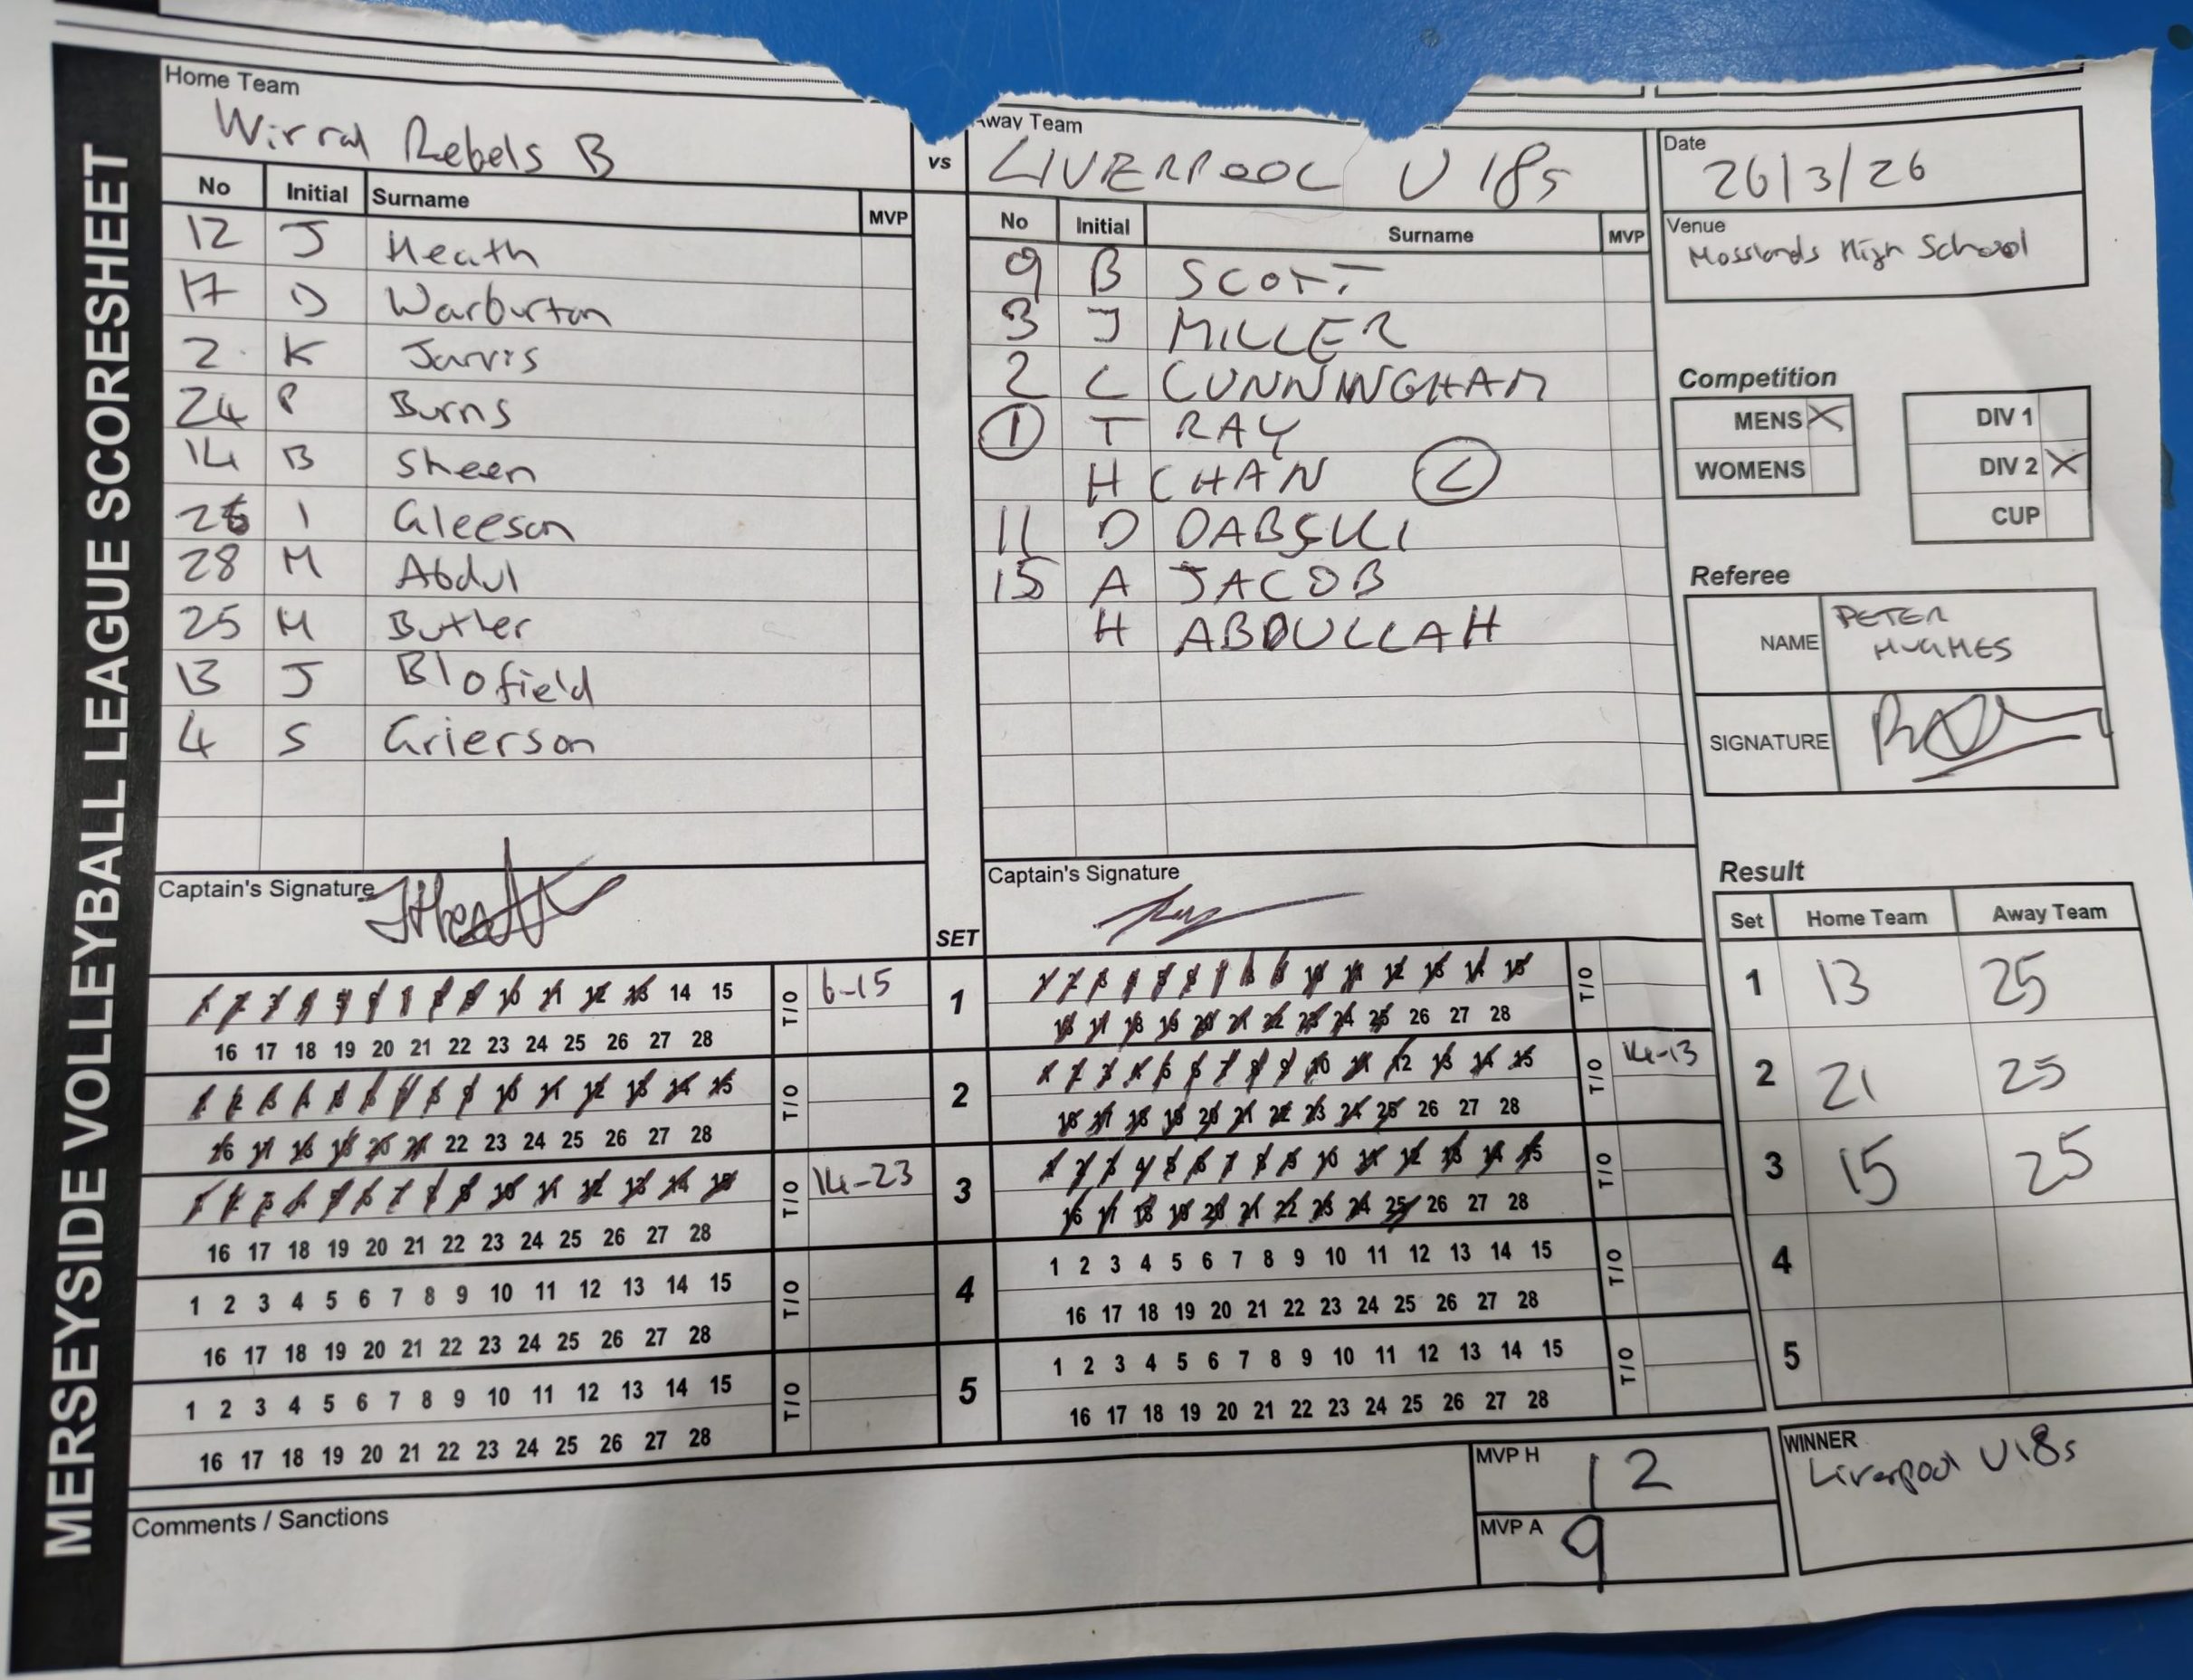 MERSEYSIDE VOLLEYBALL LEAGUE SCORESHEET
Home Team
Wirral Rebels B
vs
Away Team
LIVERPOOL U18s
No Initial Surname MVP
12 J Heath
17 D Warburton
2 K Jarvis
24 P Burns
14 B Sheen
26 I Gleeson
28 M Abdul
25 M Butler
13 J Blofield
4 S Grierson
No Initial Surname MVP
9 B SCOTT
3 J MILLER
2 C CUNNINGHAM
1 T RAY
H CHAN C
11 D DABSKI
15 A JACOB
H ABDULLAH
Date
26/3/26
Venue
Mosslands High School
Competition
MENS X
WOMENS
DIV 1
DIV 2 X
CUP
Referee
NAME PETER
HUGHES
SIGNATURE
Captain's Signature
JHeath
Captain's Signature
Ray
SET
1 2 3 4 5 6 7 8 9 10 11 12 13 14 15 T/O 6-15
16 17 18 19 20 21 22 23 24 25 26 27 28
1
1 2 3 4 5 6 7 8 9 10 11 12 13 14 15 T/O
16 17 18 19 20 21 22 23 24 25 26 27 28
1 2 3 4 5 6 7 8 9 10 11 12 13 14 15 T/O
16 17 18 19 20 21 22 23 24 25 26 27 28
2
1 2 3 4 5 6 7 8 9 10 11 12 13 14 15 T/O 14-13
16 17 18 19 20 21 22 23 24 25 26 27 28
1 2 3 4 5 6 7 8 9 10 11 12 13 14 15 T/O 14-23
16 17 18 19 20 21 22 23 24 25 26 27 28
3
1 2 3 4 5 6 7 8 9 10 11 12 13 14 15 T/O
16 17 18 19 20 21 22 23 24 25 26 27 28
1 2 3 4 5 6 7 8 9 10 11 12 13 14 15 T/O
16 17 18 19 20 21 22 23 24 25 26 27 28
4
1 2 3 4 5 6 7 8 9 10 11 12 13 14 15 T/O
16 17 18 19 20 21 22 23 24 25 26 27 28
1 2 3 4 5 6 7 8 9 10 11 12 13 14 15 T/O
16 17 18 19 20 21 22 23 24 25 26 27 28
5
1 2 3 4 5 6 7 8 9 10 11 12 13 14 15 T/O
16 17 18 19 20 21 22 23 24 25 26 27 28
Result
Set Home Team Away Team
1 13 25
2 21 25
3 15 25
4
5
Comments / Sanctions
MVP H 12
MVP A 9
WINNER
Liverpool U18s